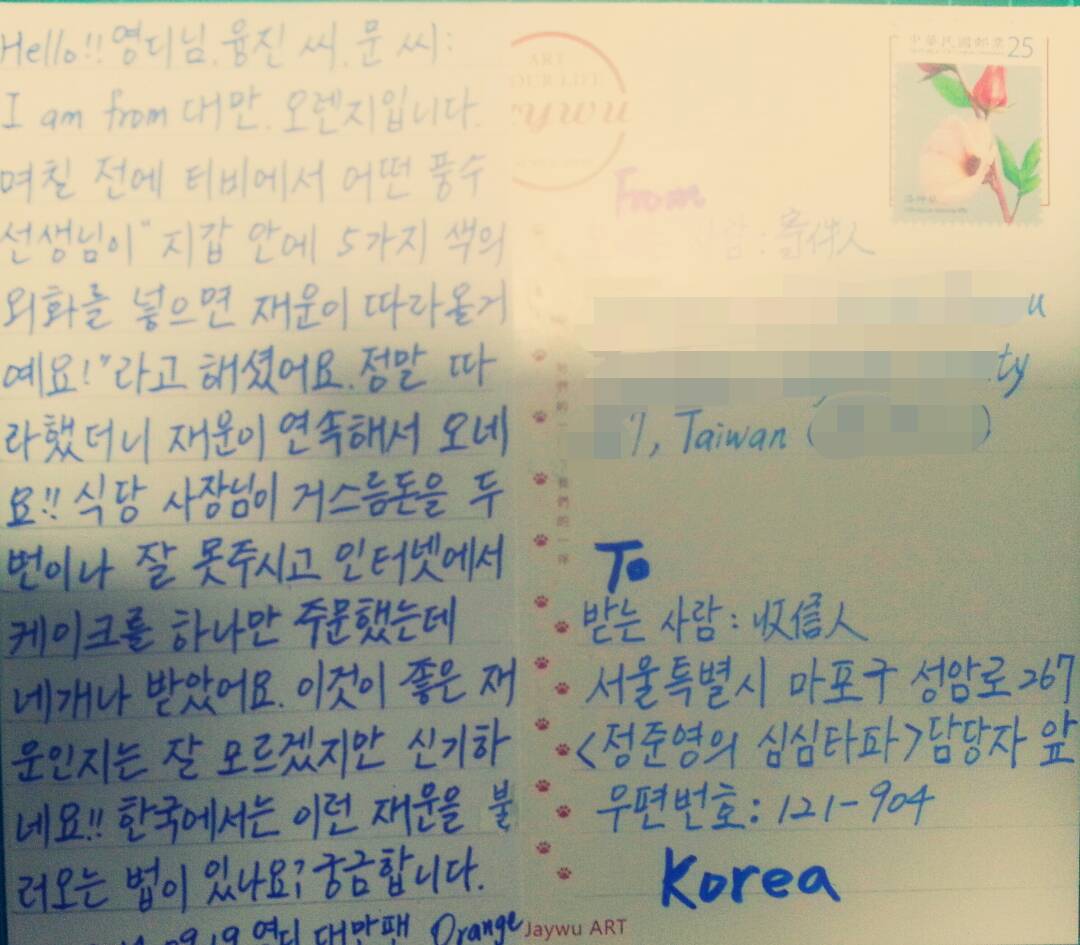 Hello!! 영디님, 융진 씨, 문 씨:
I am from 대만, 오렌지입니다.
며칠 전에 티비에서 어떤 풍수
선생님이 "지갑 안에 5가지 색의
외화를 넣으면 재운이 따라올거
예요!"라고 해셨어요. 정말 따
라했더니 재운이 연속해서 오네
요!! 식당 사장님이 거스름돈을 두
번이나 잘 못주시고 인터넷에서
케이크를 하나만 주문했는데
네개나 받았어요. 이것이 좋은 재
운인지는 잘 모르겠지만 신기하
네요!! 한국에서는 이런 재운을 불
러오는 법이 있나요? 궁금합니다.
09.19 영디 대만팬 Orange
ART
YOUR LIFE
中華民國郵票 25
From
寄件人
u
ty
Taiwan ( )
To
받는 사람 : 收信人
서울특별시 마포구 성암로 267
<정준영의 심심타파> 담당자 앞
우편번호 : 121-904
Korea
Jaywu ART